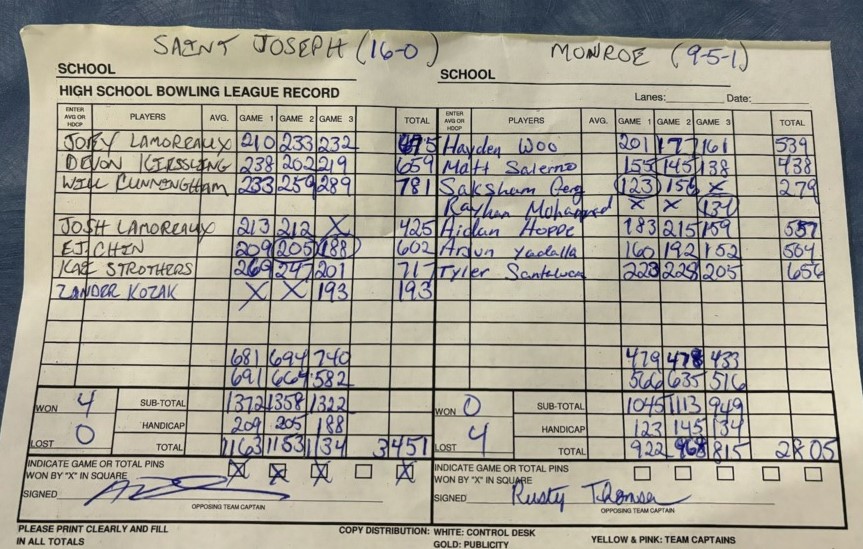 SAINT JOSEPH (16-0) MONROE (9-5-1)
SCHOOL SCHOOL
HIGH SCHOOL BOWLING LEAGUE RECORD Lanes: Date:
ENTER AVG OR HDCP PLAYERS AVG. GAME 1 GAME 2 GAME 3 TOTAL ENTER AVG OR HDCP PLAYERS AVG. GAME 1 GAME 2 GAME 3 TOTAL
JOEY LAMOREAUX 210 233 232 675 Hayden Woo 201 177 161 539
DEVON KIRSSLING 238 202 219 659 Matt Salerno 155 145 138 438
WILL CUNNINGHAM 233 259 289 781 Saksham Gerg 123 156 X 279
Rayhan Mohammed X X 134
JOSH LAMOREAUX 213 212 X 425 Aidan Hoppe 183 215 159 557
EJ CHIN 209 205 188 602 Arjun Yadalla 160 192 152 504
KAE STROTHERS 269 247 201 717 Tyler Santaluca 223 228 205 656
ZANDER KOZAK X X 193 193
681 694 740 479 478 433
691 664 582 566 635 516
WON 4 SUB-TOTAL 1372 1358 1322 WON 0 SUB-TOTAL 1045 1113 949
HANDICAP 209 205 188 HANDICAP 123 145 134
LOST 0 TOTAL 1163 1153 1134 3451 LOST 4 TOTAL 922 968 815 2805
INDICATE GAME OR TOTAL PINS WON BY "X" IN SQUARE X X X X INDICATE GAME OR TOTAL PINS WON BY "X" IN SQUARE
SIGNED SIGNED Rusty Thomsen
OPPOSING TEAM CAPTAIN OPPOSING TEAM CAPTAIN
PLEASE PRINT CLEARLY AND FILL IN ALL TOTALS COPY DISTRIBUTION: WHITE: CONTROL DESK YELLOW & PINK: TEAM CAPTAINS
GOLD: PUBLICITY